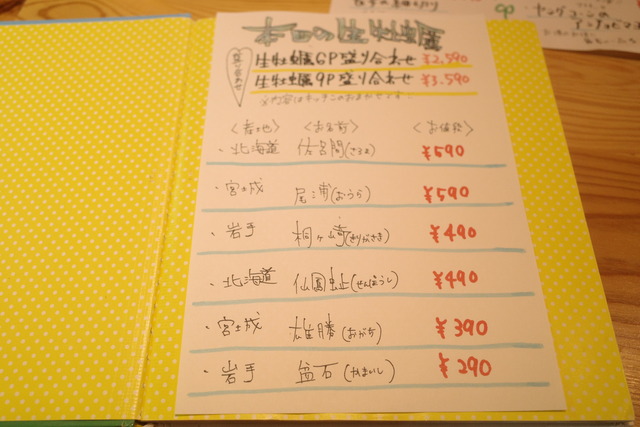 本日の生牡蠣
盛り合わせ
生牡蠣6P盛り合わせ ¥2,590
生牡蠣9P盛り合わせ ¥3,590
※内容はキッチンのおまかせです。
〈産地〉 〈お名前〉 〈お値段〉
・北海道 佐呂間(さろま) ¥590
・宮城 尾浦(おうら) ¥590
・岩手 桐ヶ崎(きりがさき) ¥490
・北海道 仙鳳趾(せんぽうし) ¥490
・宮城 雄勝(おがつ) ¥390
・岩手 釜石(かまいし) ¥290